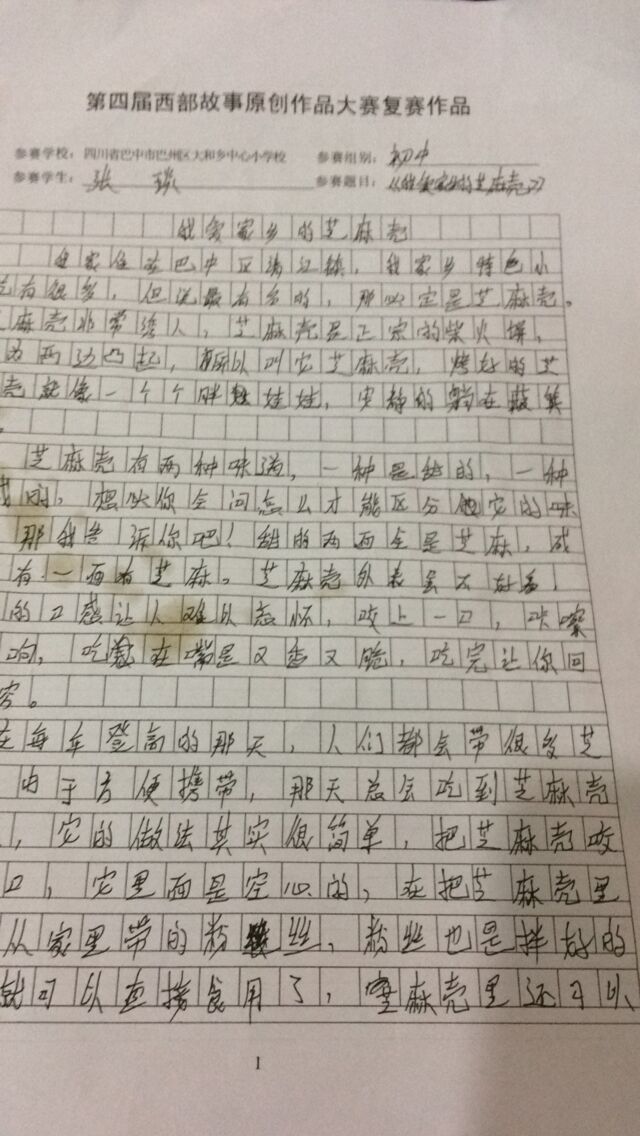 第四届西部故事原创作品大赛复赛作品
参赛学校：四川省巴中市巴州区大和乡中心小学校 参赛组别：初中
参赛学生：张 参赛题目：《我爱家乡的芝麻壳》
我爱家乡的芝麻壳
我家住在巴中区清江镇，我家乡特色小
有很多，但说最有名的，那一定是芝麻壳。
麻壳非常诱人，芝麻壳是正宗的柴火馍，
为两边凸起，所以叫它芝麻壳，烤好的芝
壳就像一个个胖娃娃，安静的躺在
芝麻壳有两种味道，一种是甜的，一种
咸的，想必你会问怎么才能区分它的味
那我告诉你吧！甜的两面全是芝麻，咸
有一面有芝麻。芝麻壳外表虽不好看，
的口感让人难以忘怀，咬上一口，咔嚓
响，吃在嘴里又香又脆，吃完让你回
穷。
在每年登高的那天，人们都会带很多芝
由于方便携带，那天总会吃到芝麻壳
，它的做法其实很简单，把芝麻壳咬
口，它里面是空心的，在把芝麻壳里
从家里带的粉丝，粉丝也是拌好的
就可以直接食用了，芝麻壳里还可以
1